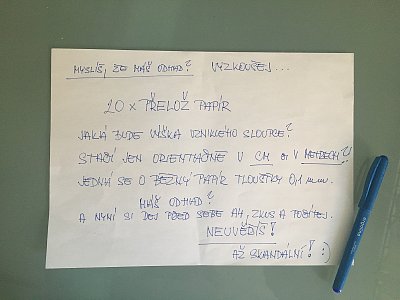 MYSLÍŠ, ŽE MÁŠ ODHAD? VYZKOUŠEJ...
20 × PŘELOŽ PAPÍR
JAKÁ BUDE VÝŠKA VZNIKLÉHO SLOUPCE?
STAČÍ JEN ORIENTAČNĚ V CM či V METRECH?
JEDNÁ SE O BĚŽNÝ PAPÍR TLOUŠŤKY 0,1 mm.
MÁŠ ODHAD?
A NYNÍ SI DEJ PŘED SEBE A4, ZKUS A POČÍTEJ.
NEUVĚŘÍŠ!
AŽ SKANDÁLNÍ! :)